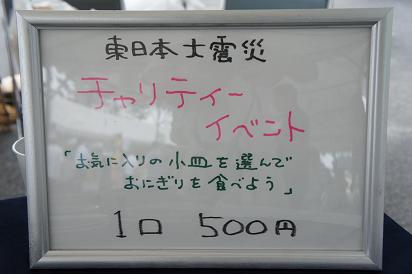 東日本大震災
チャリティー
イベント
「お気に入りの小皿を選んで
おにぎりを食べよう」
1口 500円